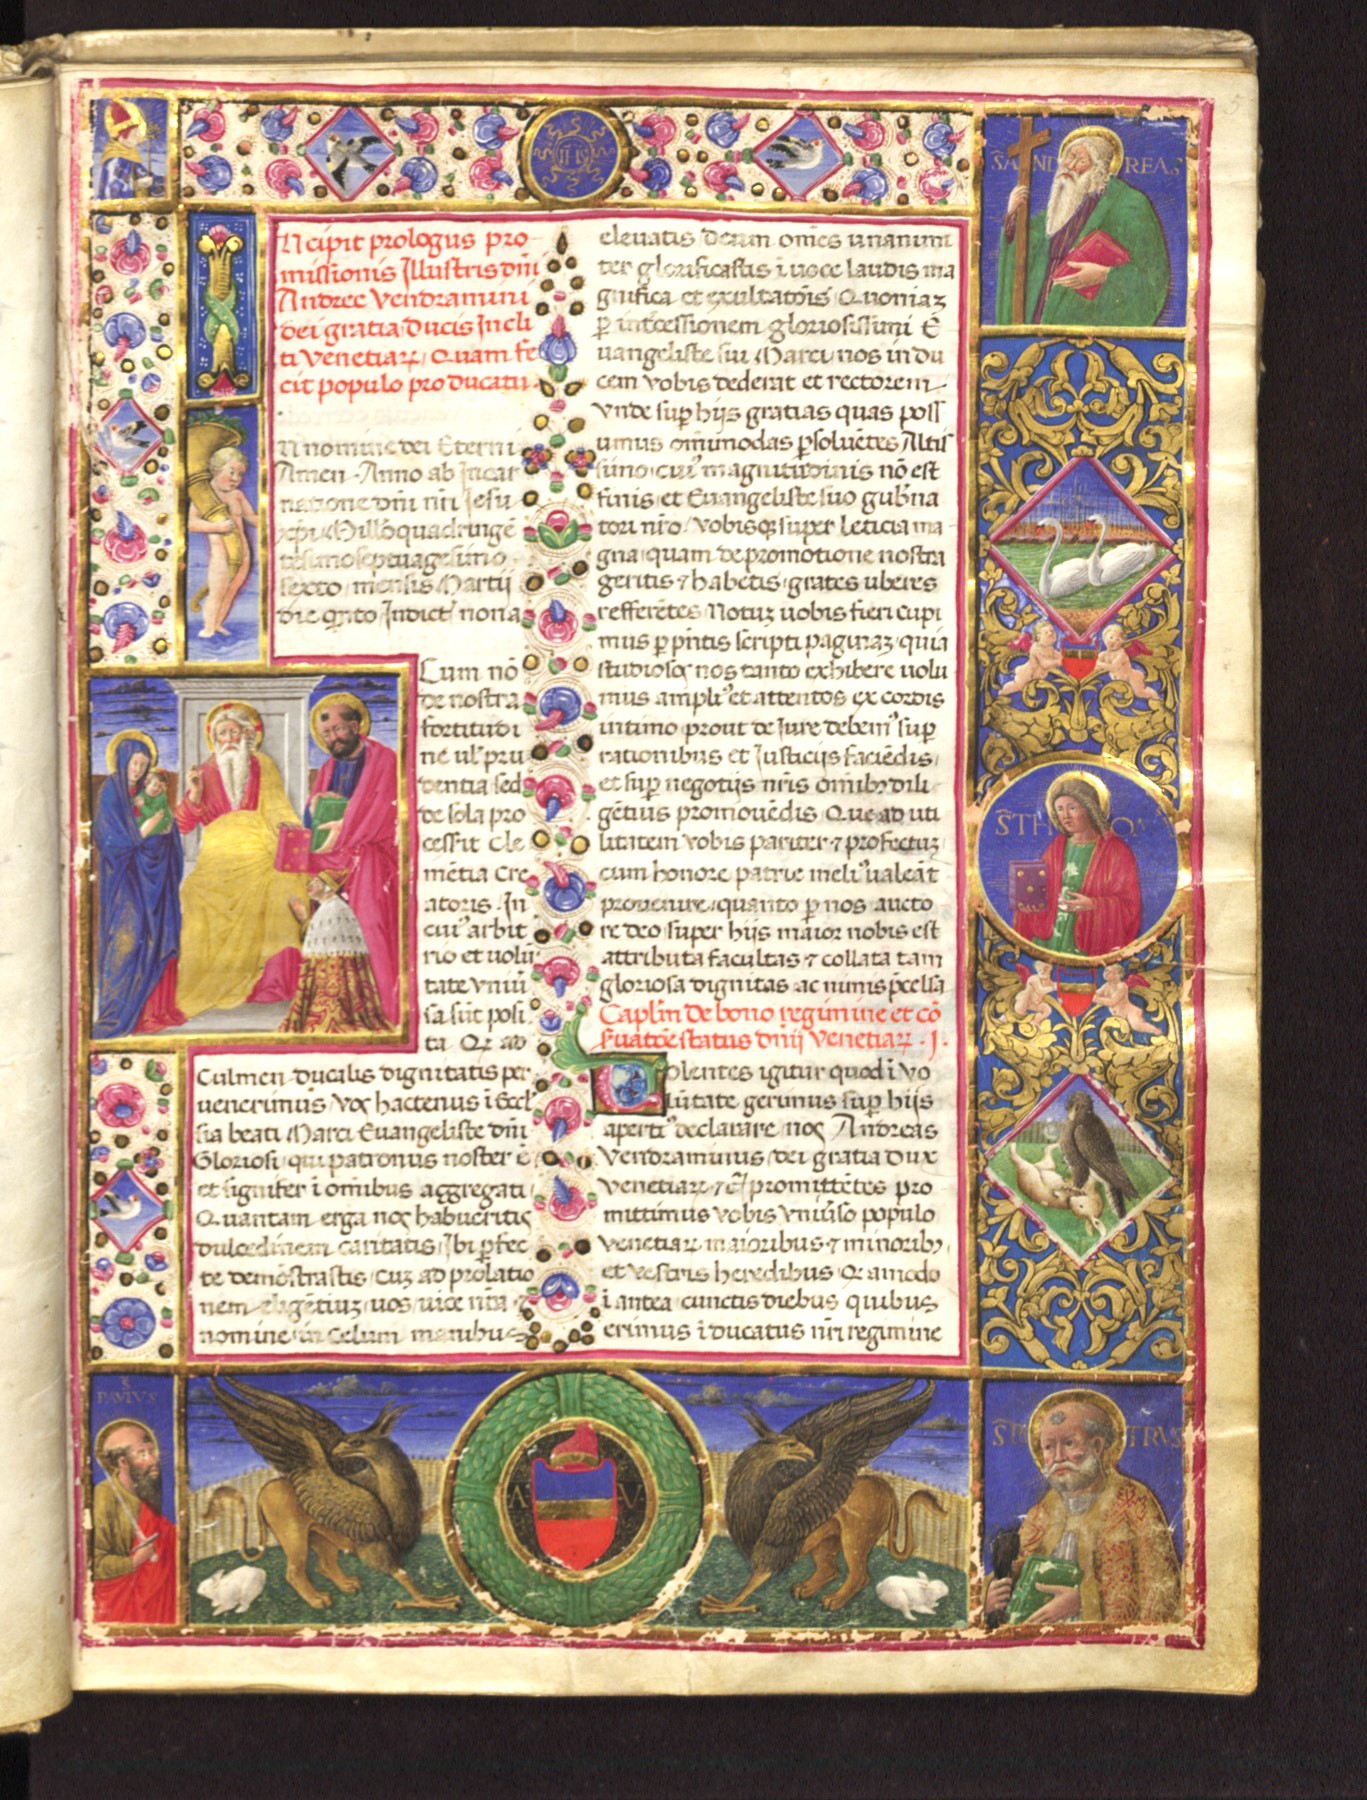 S̄ AND REAS
Incipit prologus pro-
missionis Illustris dn̄i
Andree Vendramini
dei gratia ducis Incli
ti Venetiaꝝ. Quam fe
cit populo pro ducatu
In nomine dei Eterni
Amen. Anno ab Incar
natione dn̄i nr̄i Iesu
xp̄i Millo quadringē
tesimoseptuagesimo
sexto mensis Martii
die qnto Indict nona
Cum nō
de nostra
fortitudi
ne ul pru
dentia sed
de sola pro
cessit Cle
mētia Cre
atoris. In
cui arbit
rio et volū
tate vniū
sa sūt posi
ta. Qꝫ ad
Culmen ducalis dignitatis per
uenerimus, vos hactenus ī Eccl
sia beati Marci Euangeliste dn̄i
Gloriosi, qui patronus noster ē
et signifer ī omībus aggregati
Quantam erga nos habueritis
dulcedinem caritatis, Ibi ꝑfec
te demōstrastis, cuꝫ ad prolatio
nem eligētiuꝫ, uos, uice nr̄a
nomine in Celum manibus
eleuatis deum omēs unanimi
ter glorificastis ī uoce laudis ma
gnifica et exultatōis. Quoniaꝫ
ꝑ intcessionem gloriosissimi E
uangeliste sui Marci, nos in du
cem vobis dederat et rectorem.
Vnde sup hijs gratias quas poss
umus omīmodas ꝑsoluētes Altis
simo, cui magnitudinis nō est
finis, et Euangeliste suo gubna
tori nr̄o, vobisqꝫ super leticia ma
gna quam de promotione nostra
geritis ⁊ habetis, grates uberes
refferētes, Notuꝫ uobis fieri cupi
mus ꝑ pn̄tis scripti paginaꝫ, quia
studiosos nos tanto exhibere uolu
mus ampli et attentos ex cordis
intimo prout de Iure debem sup
rationibus et Iusticijs faciēdis,
et sup negotijs nr̄is omībꝫ dili
gētius promouēdis. Que ad uti
litatem vobis pariter ⁊ profectuꝫ
cum honore patrie meli ualeāt
prouenire, quanto ꝑ nos aucto
re deo super hijs maior nobis est
attributa facultas ⁊ collata tam
gloriosa dignitas ac nimis p̄celsa
Caplm̄ de bono regimine et cō
seruatōe status dn̄ij Venetiaꝝ .I.
Volentes igitur quod ī vo
lūtate gerimus sup hijs
aperti declarare, nos Andreas
Vendraminus dei gratia dux
venetiaꝝ ⁊ c̄, promittētes pro
mittimus vobis vniuso populo
Venetiaꝝ maioribus ⁊ minoribꝫ,
et vestris heredibus. Qꝫ amodo
ī antea cunctis diebus quibus
erimus ī ducatus nr̄i regimine
S̄ TH OM
S
PAVLVS
A V
S̄ P TRVS
5